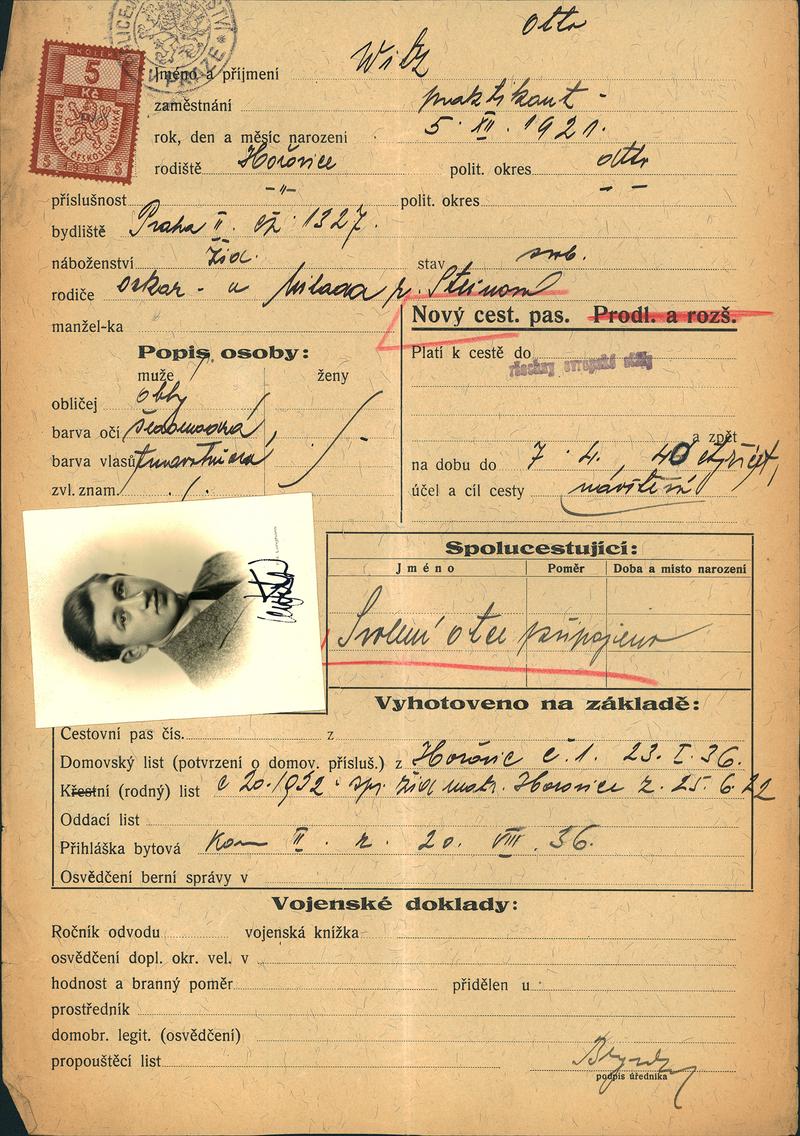 POLICEJNÍ ŘEDITELSTVÍ * V PRAZE *
KOLEK
5
Kč
REPUBLIKA ČESKOSLOVENSKÁ
5 5
Otto
Jméno a příjmení
zaměstnání praktikant -
rok, den a měsíc narození 5. XII. 1921.
rodiště Hořovice polit. okres
příslušnost - " - polit. okres - -
bydliště Praha II. čp. 1327.
náboženství žid. stav svob.
rodiče Oskar - a Milada r. Steinová
manžel-ka
Nový cest. pas. Prodl. a rozš.
Popis osoby:
muže ženy
obličej
barva očí
barva vlasů
zvl. znam.
Platí k cestě do
všechny evropské státy
a zpět
na dobu do 7. 4. 40
účel a cíl cesty návštěva
Spolucestující:
Jméno Poměr Doba a místo narození
Svolení otce připojeno
Vyhotoveno na základě:
Cestovní pas čís. z
Domovský list (potvrzení o domov. přísluš.) z Hořovic č. 1. 23. I. 36.
Křestní (rodný) list č 20./932 žid. matr. Horovice z. 25. 6. 22
Oddací list
Přihláška bytová Kom II. z. 20. VIII. 36.
Osvědčení berní správy v
Vojenské doklady:
Ročník odvodu vojenská knížka
osvědčení dopl. okr. vel. v
hodnost a branný poměr přidělen u
prostředník
domobr. legit. (osvědčení)
propouštěcí list
podpis úředníka